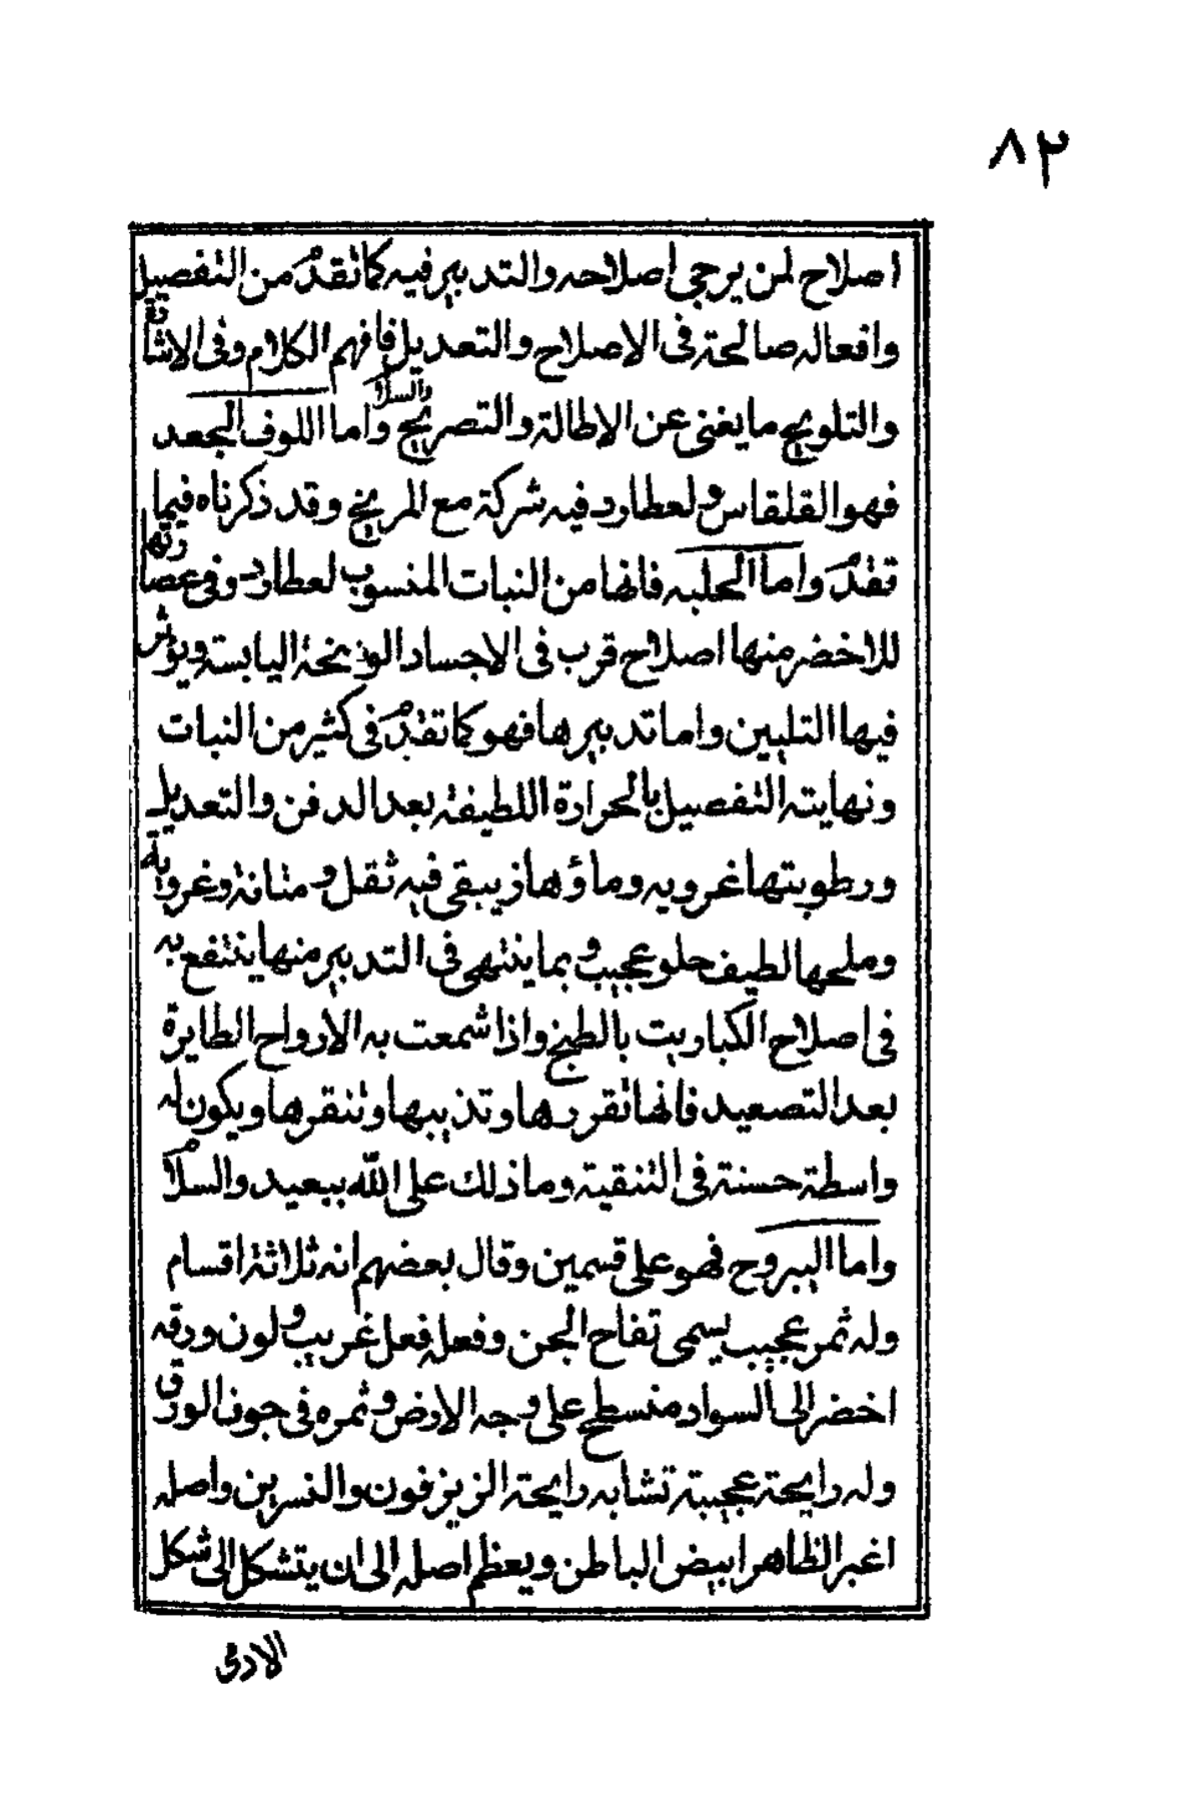 ٨٢
اصلاح لمن يرجى اصلاحه والتدبير فيه كما تقدم من التفصيل
وافعاله صالحة فى الاصلاح والتعديل فافهم الكلام وفى الاشارة
والتلويح ما يغنى عن الاطالة والتصريح والسلام واما اللوف الجعد
فهو القلقاس ولعطارد فيه شركة مع المريخ وقد ذكرناه فيما
تقدم واما الحلبه فانها من النبات المنسوب لعطارد وفى عصارتها
للاخضر منها اصلاح قرب فى الاجساد اليابسة ويؤثر
فيها التليين واما تدبيرها فهو كما تقدم فى كثير من النبات
ونهايته التفصيل بالحرارة اللطيفة بعد الدفن والتعديل
ورطوبتها غرويه وماؤها زيبقى فيه ثقل ومتانة وغروية
وملحها لطيف حلو عجيب وبما ينتهى فى التدبير منها ينتفع به
فى اصلاح الكباريت بالطبخ واذا شمعت به الارواح الطايرة
بعد التصعيد فانها تقررها وتذيبها وتنقرها ويكون له
واسطة حسنة فى التنقية وما ذلك على الله ببعيد والسلام
واما اليبروح فهو على قسمين وقال بعضهم انه ثلاثة اقسام
وله ثمر عجيب يسمى تفاح الجن وفعله فعل غريب ولون ورقه
اخضر الى السواد منسطح على وجه الارض وثمره فى جوف الورق
وله رايحة عجيبة تشابه رايحة الزيزفون والنسرين واصله
اغبر الظاهر ابيض الباطن ويعظم اصله الى ان يتشكل الى شكل
الادمى